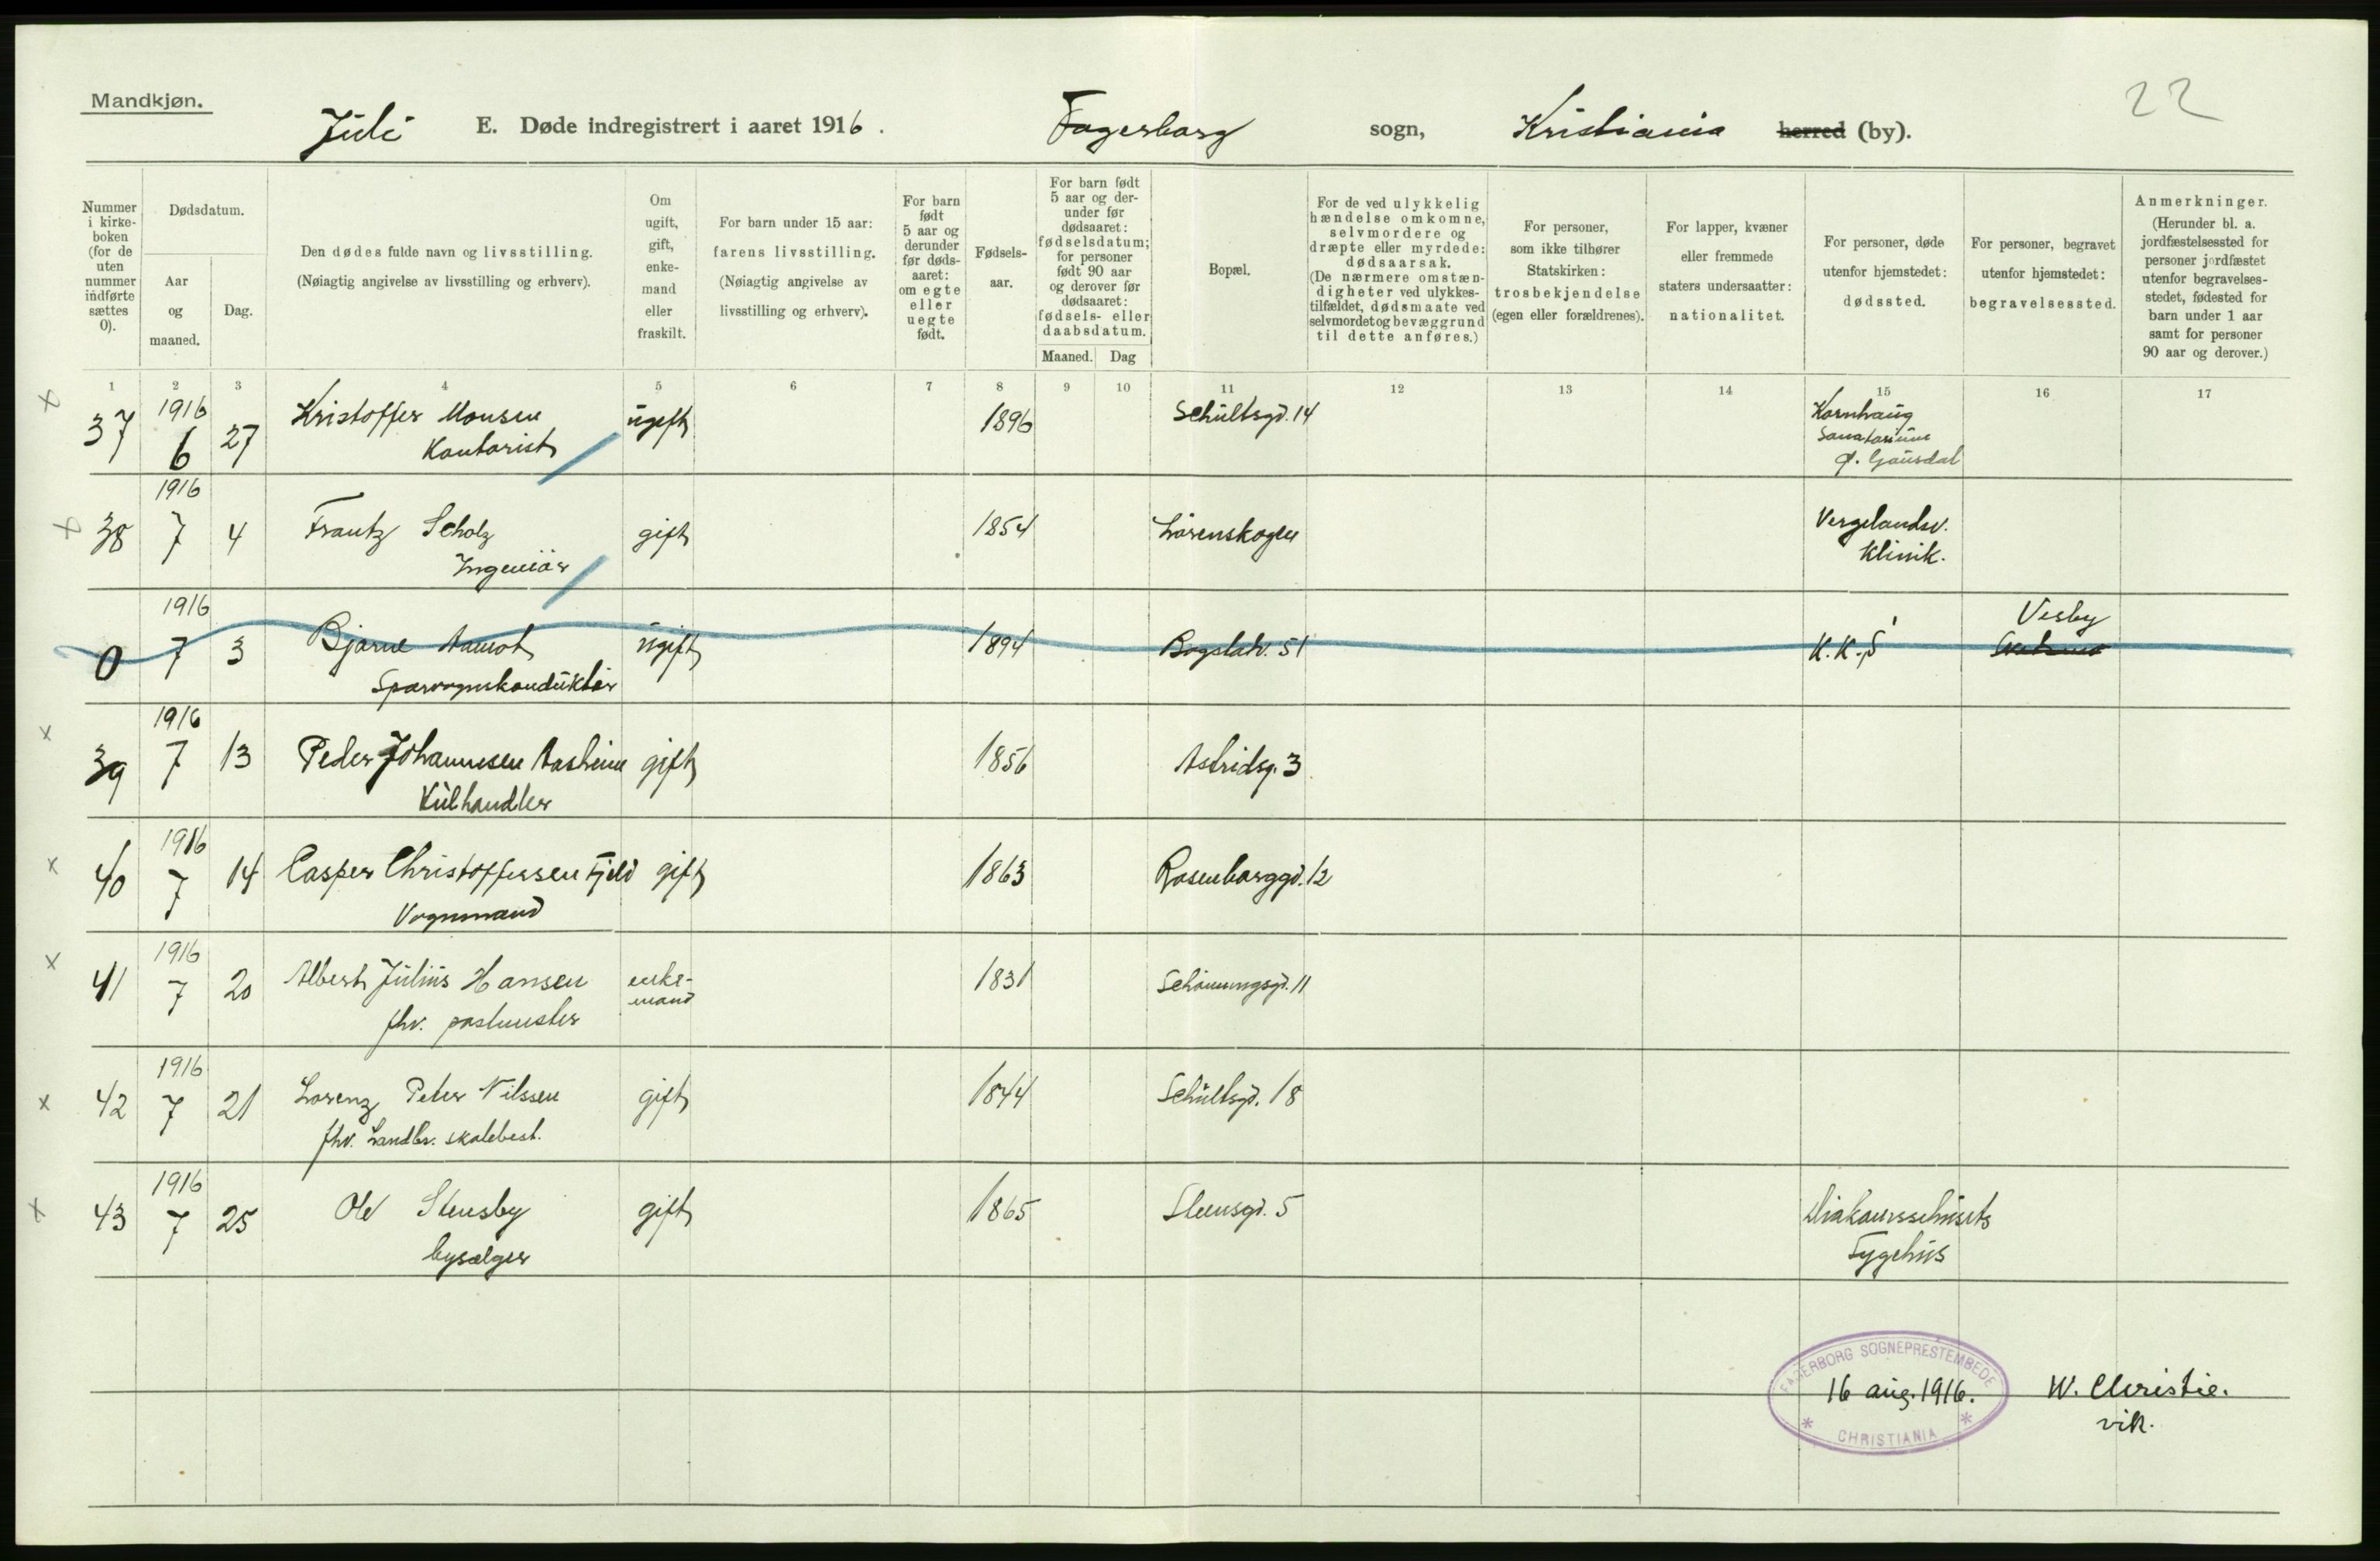 Mandkjøn.
22
Juli E. Døde indregistrert i aaret 1916. Fagerborg sogn, Kristiania herred (by).
Nummer i kirke-boken (for de uten nummer indførte sættes 0).
Dødsdatum.
Aar og maaned.
Dag.
Den dødes fulde navn og livsstilling.
(Nøiagtig angivelse av livsstilling og erhverv).
Om ugift, gift, enke-mand eller fraskilt.
For barn under 15 aar:
farens livsstilling.
(Nøiagtig angivelse av livsstilling og erhverv).
For barn født 5 aar og derunder før døds-aaret: om egte eller uegte født.
Fødsels-aar.
For barn født 5 aar og der-under før dødsaaret: fødselsdatum; for personer født 90 aar og derover før dødsaaret: fødsels- eller daabsdatum.
Maaned. Dag
Bopæl.
For de ved ulykkelig hændelse omkomne, selvmordere og dræpte eller myrdede: dødsaarsak. (De nærmere omstæn-digheter ved ulykkes-tilfældet, dødsmaate ved selvmordet og bevæggrund til dette anføres.)
For personer, som ikke tilhører Statskirken: trosbekjendelse (egen eller forældrenes).
For lapper, kvæner eller fremmede staters undersaatter: nationalitet.
For personer, døde utenfor hjemstedet: dødssted.
For personer, begravet utenfor hjemstedet: begravelsessted.
Anmerkninger.
(Herunder bl. a. jordfæstelsessted for personer jordfæstet utenfor begravelses-stedet, fødested for barn under 1 aar samt for personer 90 aar og derover.)
1 2 3 4 5 6 7 8 9 10 11 12 13 14 15 16 17
x 37 1916 6 27 Kristoffer Monsen ugift 1896 Schultsgd. 14 Kornhaug
Kontorist Sanatorium
Ø. Gausdal
x 38 1916 7 4 Frantz Scholz gift 1854 Lørenskogen Vergelandsv.
Ingeniør Klinik.
0 1916 7 3 Bjarne Aamot ugift 1894 Bogstadv. 51 K.K.S Vesby
Sporvognskonduktør
x 39 1916 7 13 Peder Johannesen Aasheim gift 1856 Astridsg. 3
Kulhandler
x 40 1916 7 14 Casper Christoffersen Fjeld gift 1863 Rosenborggd. 12
Vognmand
x 41 1916 7 20 Albert Julius Hansen enke-mand 1831 Schønningsgd. 11
fhv. postmester
x 42 1916 7 21 Lorenz Peter Nilssen gift 1844 Schultsgd. 18
fhv. Landbr. skolebest.
x 43 1916 7 25 Ole Stensby gift 1865 Stensgd. 5 Diakonissehusets
bysælger Sygehus
FAGERBORG SOGNEPRESTEMBEDE
16 aug. 1916. W. Christie.
vik.
* CHRISTIANIA *